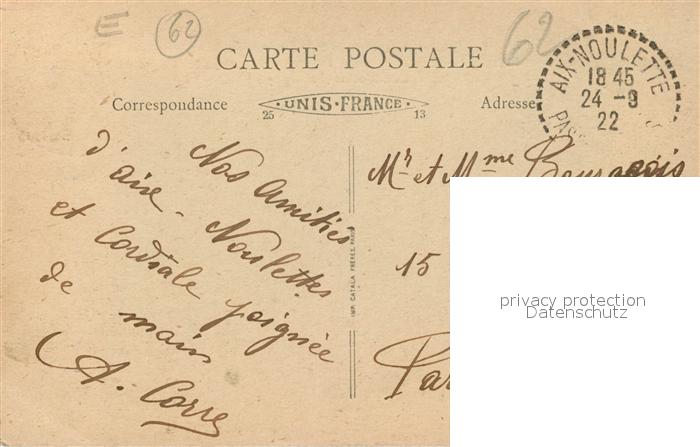 E
62
62
CARTE POSTALE
Correspondance
UNIS-FRANCE
25
13
Adresse
AIX-NOULETTE
18 45
24 - 9
22
Nos Amitiés
d'aix - Noulettes
et Cordiale poignée
de main
A. Corre
IMP. CATALA FRÈRES, PARIS
Mr et Mme
15
Par
privacy protection
Datenschutz